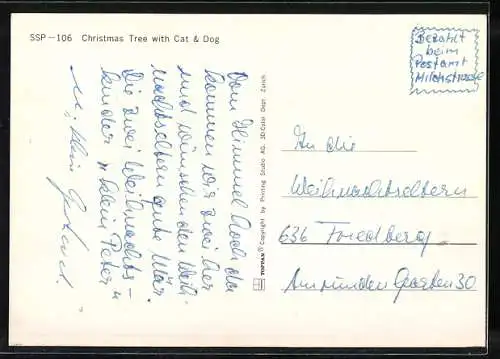 SSP-106 Christmas Tree with Cat & Dog
Bezahlt
beim
Postamt
Milchstrasse
Vom Himmel hoch da
kommen wir zwei her
und wünschen den Weih-
nachtseltern gute Mär.
Die zwei Weihnachts-
kinder "klein Peter
u. klein
TOPPAN © Copyright by Printing Studio AG, 3D-Color Dept. Zürich
An die
Weihnachtseltern
636 Friedberg
Am runden Garten 30